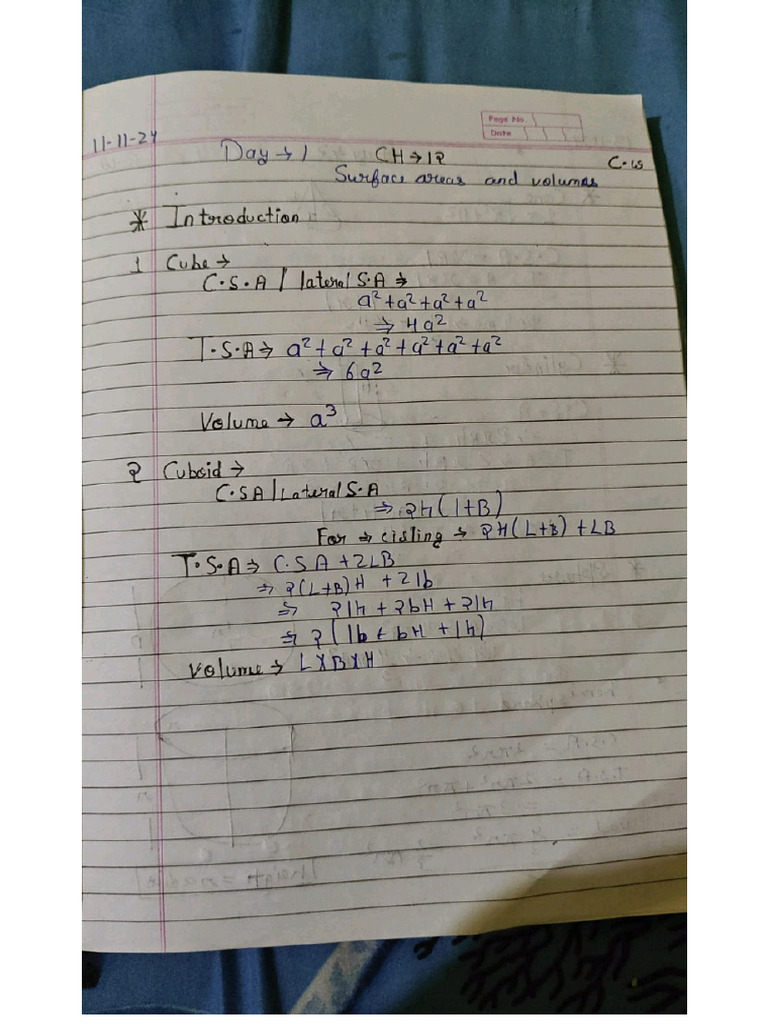 Page No.
Date
11-11-24
Day → 1 CH → 12 C.W
Surface areas and volumes
* Introduction
1 Cube →
C.S.A / lateral S.A ⇒
a²+a²+a²+a²
⇒ 4a²
T.S.A ⇒ a²+a²+a²+a²+a²+a²
⇒ 6a²
Volume → a³
2 Cuboid →
C.SA / Lateral S.A
⇒ 2h(l+B)
For ⇒ cisling → 2H(L+B) + LB
T.S.A ⇒ C.SA + 2LB
⇒ 2(L+B)H + 2lb
⇒ 2lh + 2bH + 2lh
⇒ 2(lb + bH + lh)
Volume → LXBXH